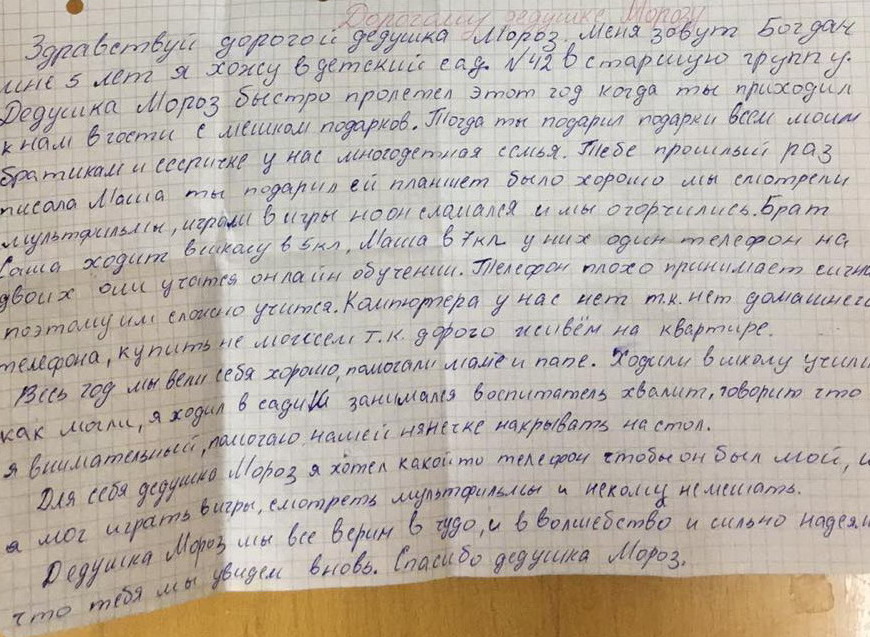 Дорогому дедушке Морозу
Здравствуй дорогой дедушка Мороз. Меня зовут Богдан
мне 5 лет я хожу в детский сад. №42 в старшую группу.
Дедушка Мороз быстро пролетел этот год когда ты приходил
к нам в гости с мешком подарков. Тогда ты подарил подарки всем моим
братикам и сестричке у нас многодетная семья. Тебе прошлый раз
писала Маша ты подарил ей планшет было хорошо мы смотрели
мультфильмы, играли в игры но он сламался и мы огорчились. Брат
Саша ходит в школу в 5кл, Маша в 7кл у них один телефон на
двоих они учатся онлайн обучении. Телефон плохо принимает сигнал
поэтому им сложно учится. Компютера у нас нет т.к. нет домашнего
телефона, купить не можем т.к. дорого живём на квартире.
Весь год мы вели себя хорошо, помогали маме и папе. Ходили в школу учили
как могли, я ходил в садик занимался воспитатель хвалит, говорит что
я внимательный, помогаю нашей нянечке накрывать на стол.
Для себя дедушка Мороз я хотел какой то телефон чтобы он был мой, и
я мог играть в игры, смотреть мультфильмы и некому немешать.
Дедушка Мороз мы все верим в чудо, и в волшебство и сильно надеям
что тебя мы увидем вновь. Спасибо дедушка Мороз.